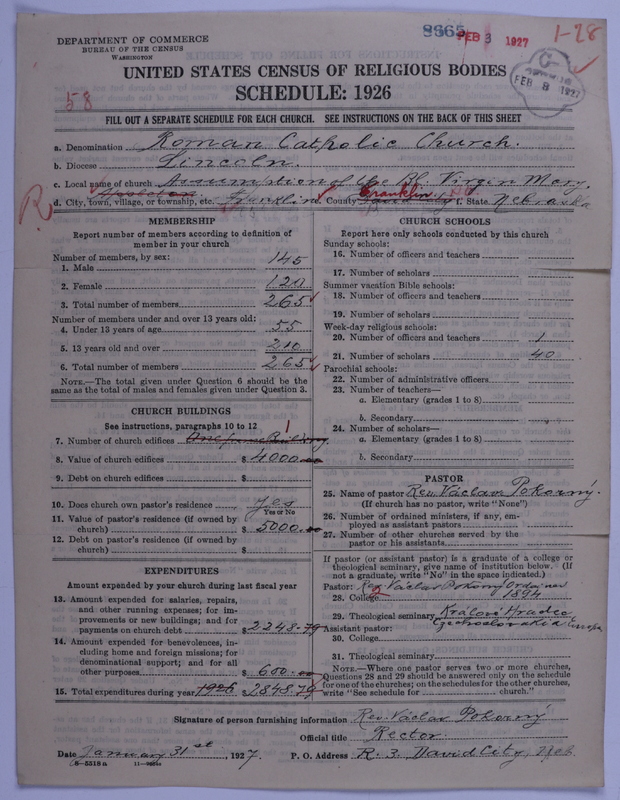 DEPARTMENT OF COMMERCE
BUREAU OF THE CENSUS
WASHINGTON
8865
FEB 3 1927
1-28
FEB 8 1927
UNITED STATES CENSUS OF RELIGIOUS BODIES
SCHEDULE: 1926
58
FILL OUT A SEPARATE SCHEDULE FOR EACH CHURCH. SEE INSTRUCTIONS ON THE BACK OF THIS SHEET
a. Denomination Roman Catholic Church.
b. Diocese Lincoln.
c. Local name of church Assumption of the Bl. Virgin Mary.
R
d. City, town, village, or township, etc. Appleton Franklin County Franklin f. State Nebraska
MEMBERSHIP
Report number of members according to definition of
member in your church
Number of members, by sex:
1. Male 145
2. Female 120
3. Total number of members 265
Number of members under and over 13 years old:
4. Under 13 years of age 55
5. 13 years old and over 210
6. Total number of members 265
NOTE.—The total given under Question 6 should be the
same as the total of males and females given under Question 3.
CHURCH BUILDINGS
See instructions, paragraphs 10 to 12
7. Number of church edifices One frame Building 1
8. Value of church edifices $ 4000.00
9. Debt on church edifices $
10. Does church own pastor's residence yes
Yes or No
11. Value of pastor's residence (if owned by
church) $ 5000.00
12. Debt on pastor's residence (if owned by
church) $
EXPENDITURES
Amount expended by your church during last fiscal year
13. Amount expended for salaries, repairs,
and other running expenses; for im-
provements or new buildings; and for
payments on church debt $ 2248.79
14. Amount expended for benevolences, in-
cluding home and foreign missions; for
denominational support; and for all
other purposes $ 600.00
15. Total expenditures during year 1926 $ 2848.79
CHURCH SCHOOLS
Report here only schools conducted by this church
Sunday schools:
16. Number of officers and teachers
17. Number of scholars
Summer vacation Bible schools:
18. Number of officers and teachers
19. Number of scholars
Week-day religious schools:
20. Number of officers and teachers 1
21. Number of scholars 40
Parochial schools:
22. Number of administrative officers
23. Number of teachers—
a. Elementary (grades 1 to 8)
b. Secondary
24. Number of scholars—
a. Elementary (grades 1 to 8)
b. Secondary
PASTOR
25. Name of pastor Rev. Václav Pokorný.
(If church has no pastor, write "None")
26. Number of ordained ministers, if any, em-
ployed as assistant pastors
27. Number of other churches served by the
pastor or his assistants
If pastor (or assistant pastor) is a graduate of a college or
theological seminary, give name of institution below. (If
not a graduate, write "No" in the space indicated.)
Pastor: Rev. Václav Pokorný Ordained
28. College 2 1894
29. Theological seminary Králové Hradec
Czechoslovakia Europa
Assistant pastor:
30. College
31. Theological seminary
NOTE.—Where one pastor serves two or more churches,
Questions 28 and 29 should be answered only on the schedule
for one of the churches; on the schedules for the other churches,
write "See schedule for church."
Signature of person furnishing information Rev. Václav Pokorný
Official title Rector.
Date January 31st, 1927. P. O. Address R. 3. David City, Neb
8-5518a